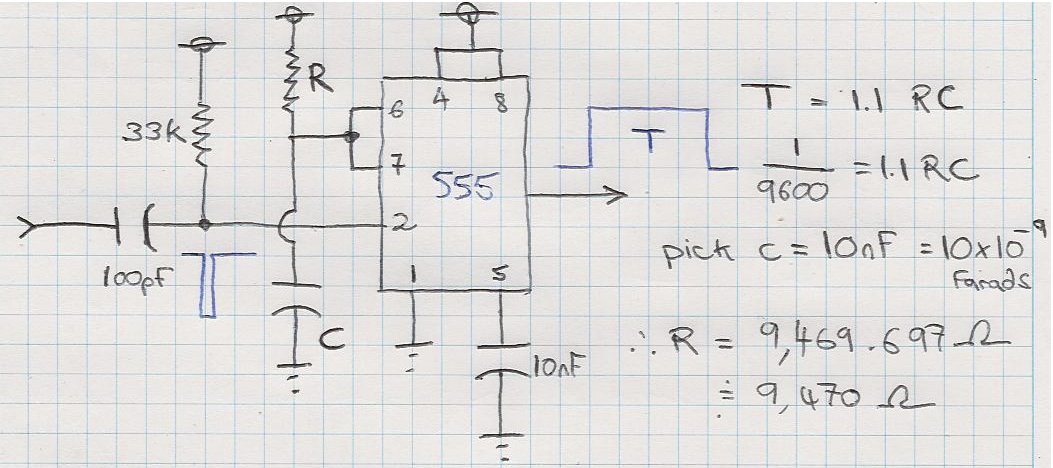 R
33k
6
4
8
7
555
2
1
5
100pF
C
10nF
T
T = 1.1 RC
1/9600 = 1.1 RC
pick C = 10nF = 10x10⁻⁹
Farads
∴ R = 9,469.697 Ω
≑ 9,470 Ω